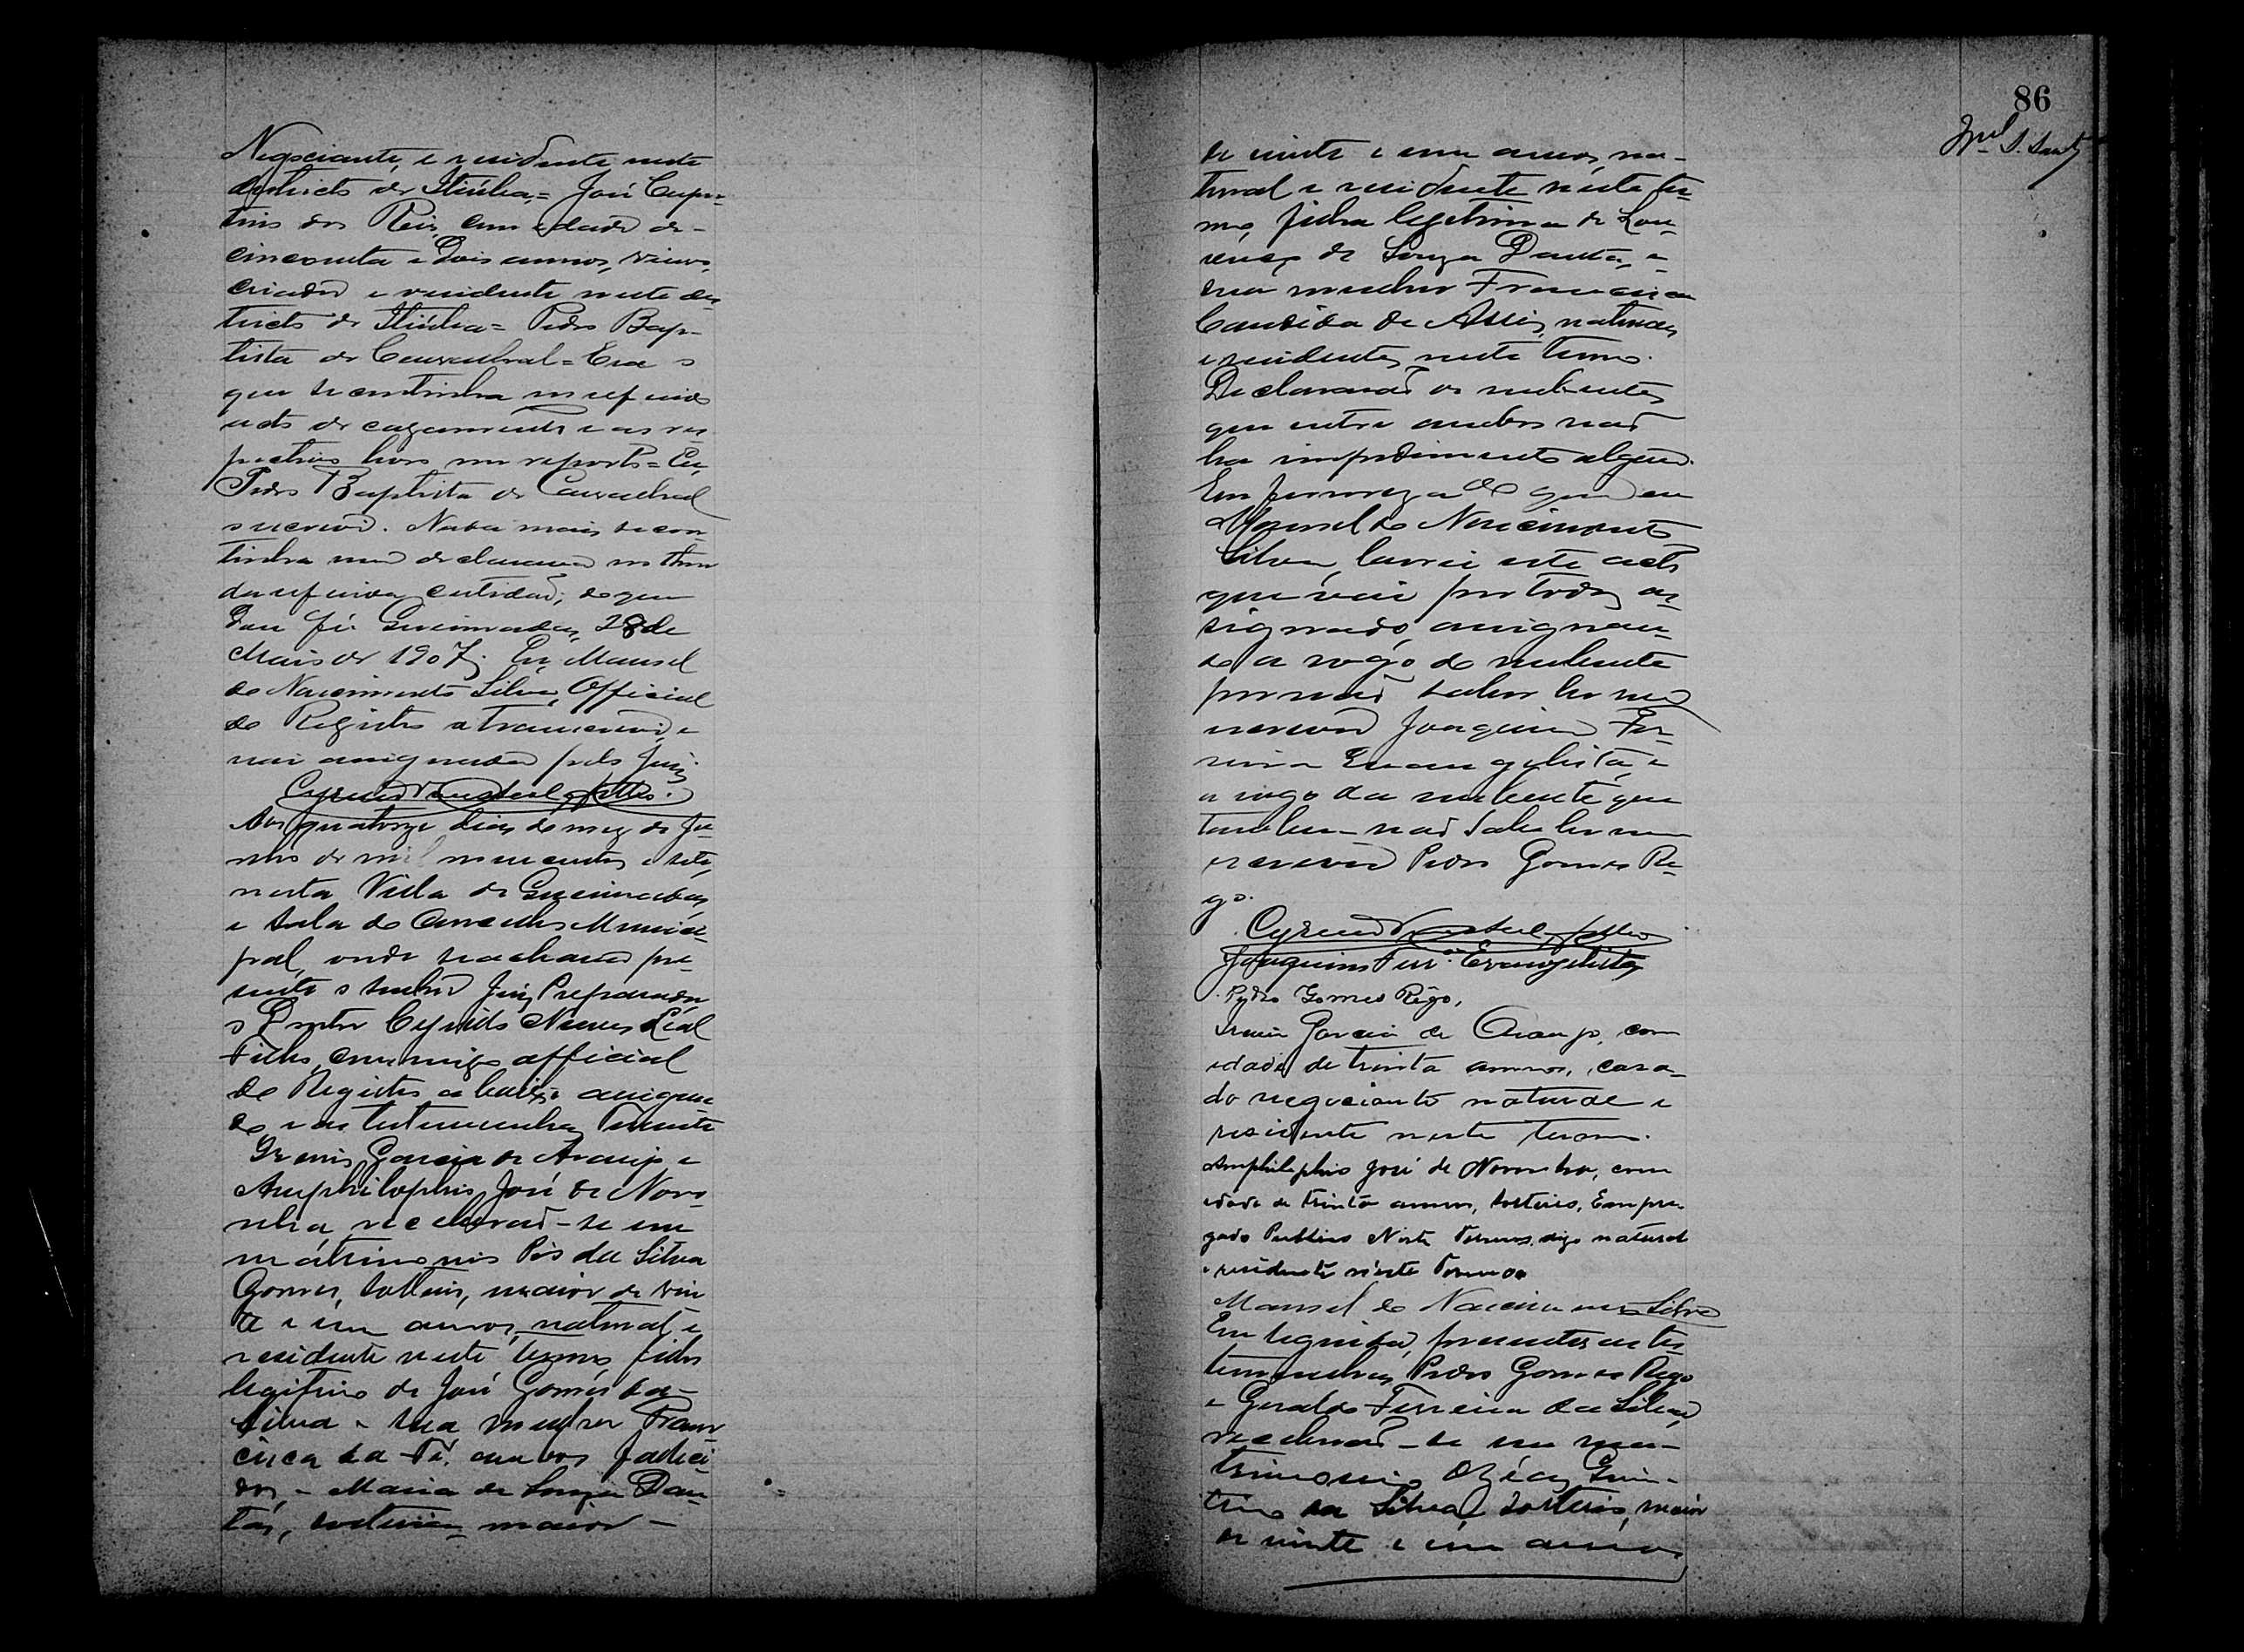 Negociante, e residente neste
districto de Itiúba,= José Cuper-
tino dos Reis, com edade de -
cincoenta e dois annos, viuvo,
criador e residente neste dis-
tricto de Itiúba= Pedro Bap-
tista de Carvalhal= Era o
que se continha no referido
acto de cazamento e as res-
pectivo livro me reporto= Eu,
Pedro Baptista de Carvalhal
o escrevi. Nada mais se con-
tinha nem declarava
da referida certidaõ, do que
Dou fé. Queimadas, 28 de
Maio de 1907. Eu Manoel
do Nascimento Silva, Official
do Registro a transcrevi, e
vai assignada pelo Juiz.
Aos quatorze dias do mez de Ju-
nho de mil novecentos e sete,
nesta Villa de Queimadas,
e sala do Conselho Munici-
pal, onde se achava pre-
sente o senhor Juiz Preparador
o Doutor Cyrillo Nunes Leal
Filho, commigo official
do Registro abaixo assigna-
do e as testemunhas Tenente
Garcia de Araujo e
Amphilophio José de Noro-
nha, receberaõ-se em
matrimonio Pio da Silva
Gomes, solteiro, maior de vin
te e um annos, natural e
residente neste termo filho
legitimo de José Gomes da -
Silva e sua mulher Fran-
cisca da Fé, ambos falleci-
dos, - Maria de Souza Dan-
tas, solteira, maior -
86
de vinte e um annos, na-
tural e residente neste ter-
mo, filha legitima de Lou-
renço de Souza Dantas, e
sua mulher Francisca
Candida de Assis, naturaes
e residentes neste termo.
Declararaõ os nubentes
que entre ambos naõ
ha impedimento algum.
Em firmeza do que eu
Manoel do Nascimento
Silva, lavrei este acto
que vai por todos as-
signado, assignan-
do a rogo do nubente
por naõ saber ler nem
escrever Joaquim Fer-
reira Evangelista, e
a rogo da nubente que
tambem naõ sabe ler nem
escrever Pedro Gomes Re-
go.
Joaquim Ferrª Evangelista
Pedro Gomes Rêgo,
Garcia de Araujo, com
edade de trinta annos, casa-
do negociante natural e
residente neste termo.
Amphilophio José de Noronha, com
edade de trinta annos, solteiro, Empre-
gado Publico Neste Termo, digo natural
e residente n'este Termo
Manoel do Nascimento Silva
Em seguida, presentes as tes-
temunhas Pedro Gomes Rego
e Geraldo Ferreira da Silva,
receberaõ-se em ma-
trimonio Ozéas Quin-
tino da Silva, solteiro, maior
de vinte e um annos